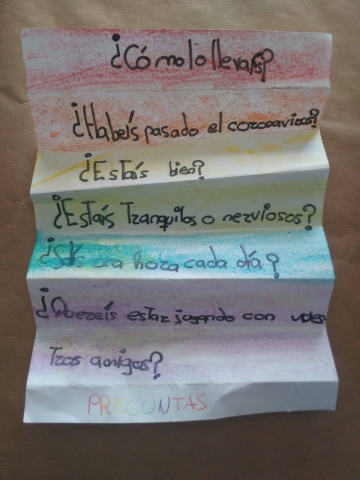 ¿Cómo lo llevaís?
¿Habeís pasado el coronavirus?
¿Estaís bien?
¿Estaís Tranquilos o nerviosos?
una hora cada día?
¿Quereís estar jugando con vues
Tros amigos?
PREGUNTAS